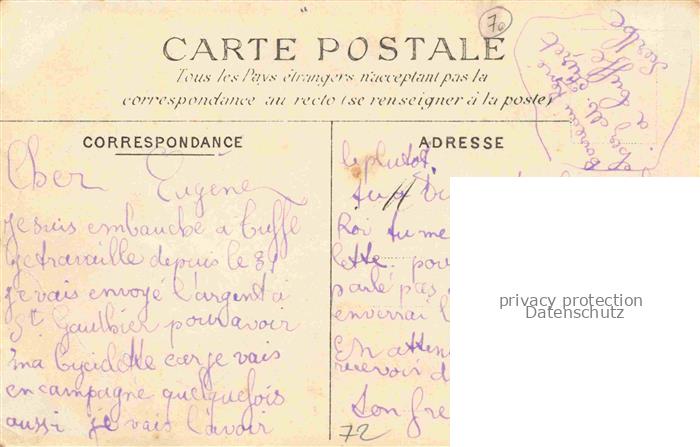 70
CARTE POSTALE
Tous les Pays étrangers n'acceptent pas la
correspondance au recto (se renseigner à la poste)
CORRESPONDANCE
Cher Eugène
je suis embauché a Tuffé
je travaille depuis le 31
je vais envoyé l'argent a
St Gaulthier pour avoir
ma bycidette car je vais
en campagne quelquefois
aussi je vais l'avoir
ADRESSE
le plutot
toi tu me
pour
parlé pas
enverrai l
En atten
recevoir d
Ton fre
72
René
a Tuffé
Sarthe
privacy protection
Datenschutz